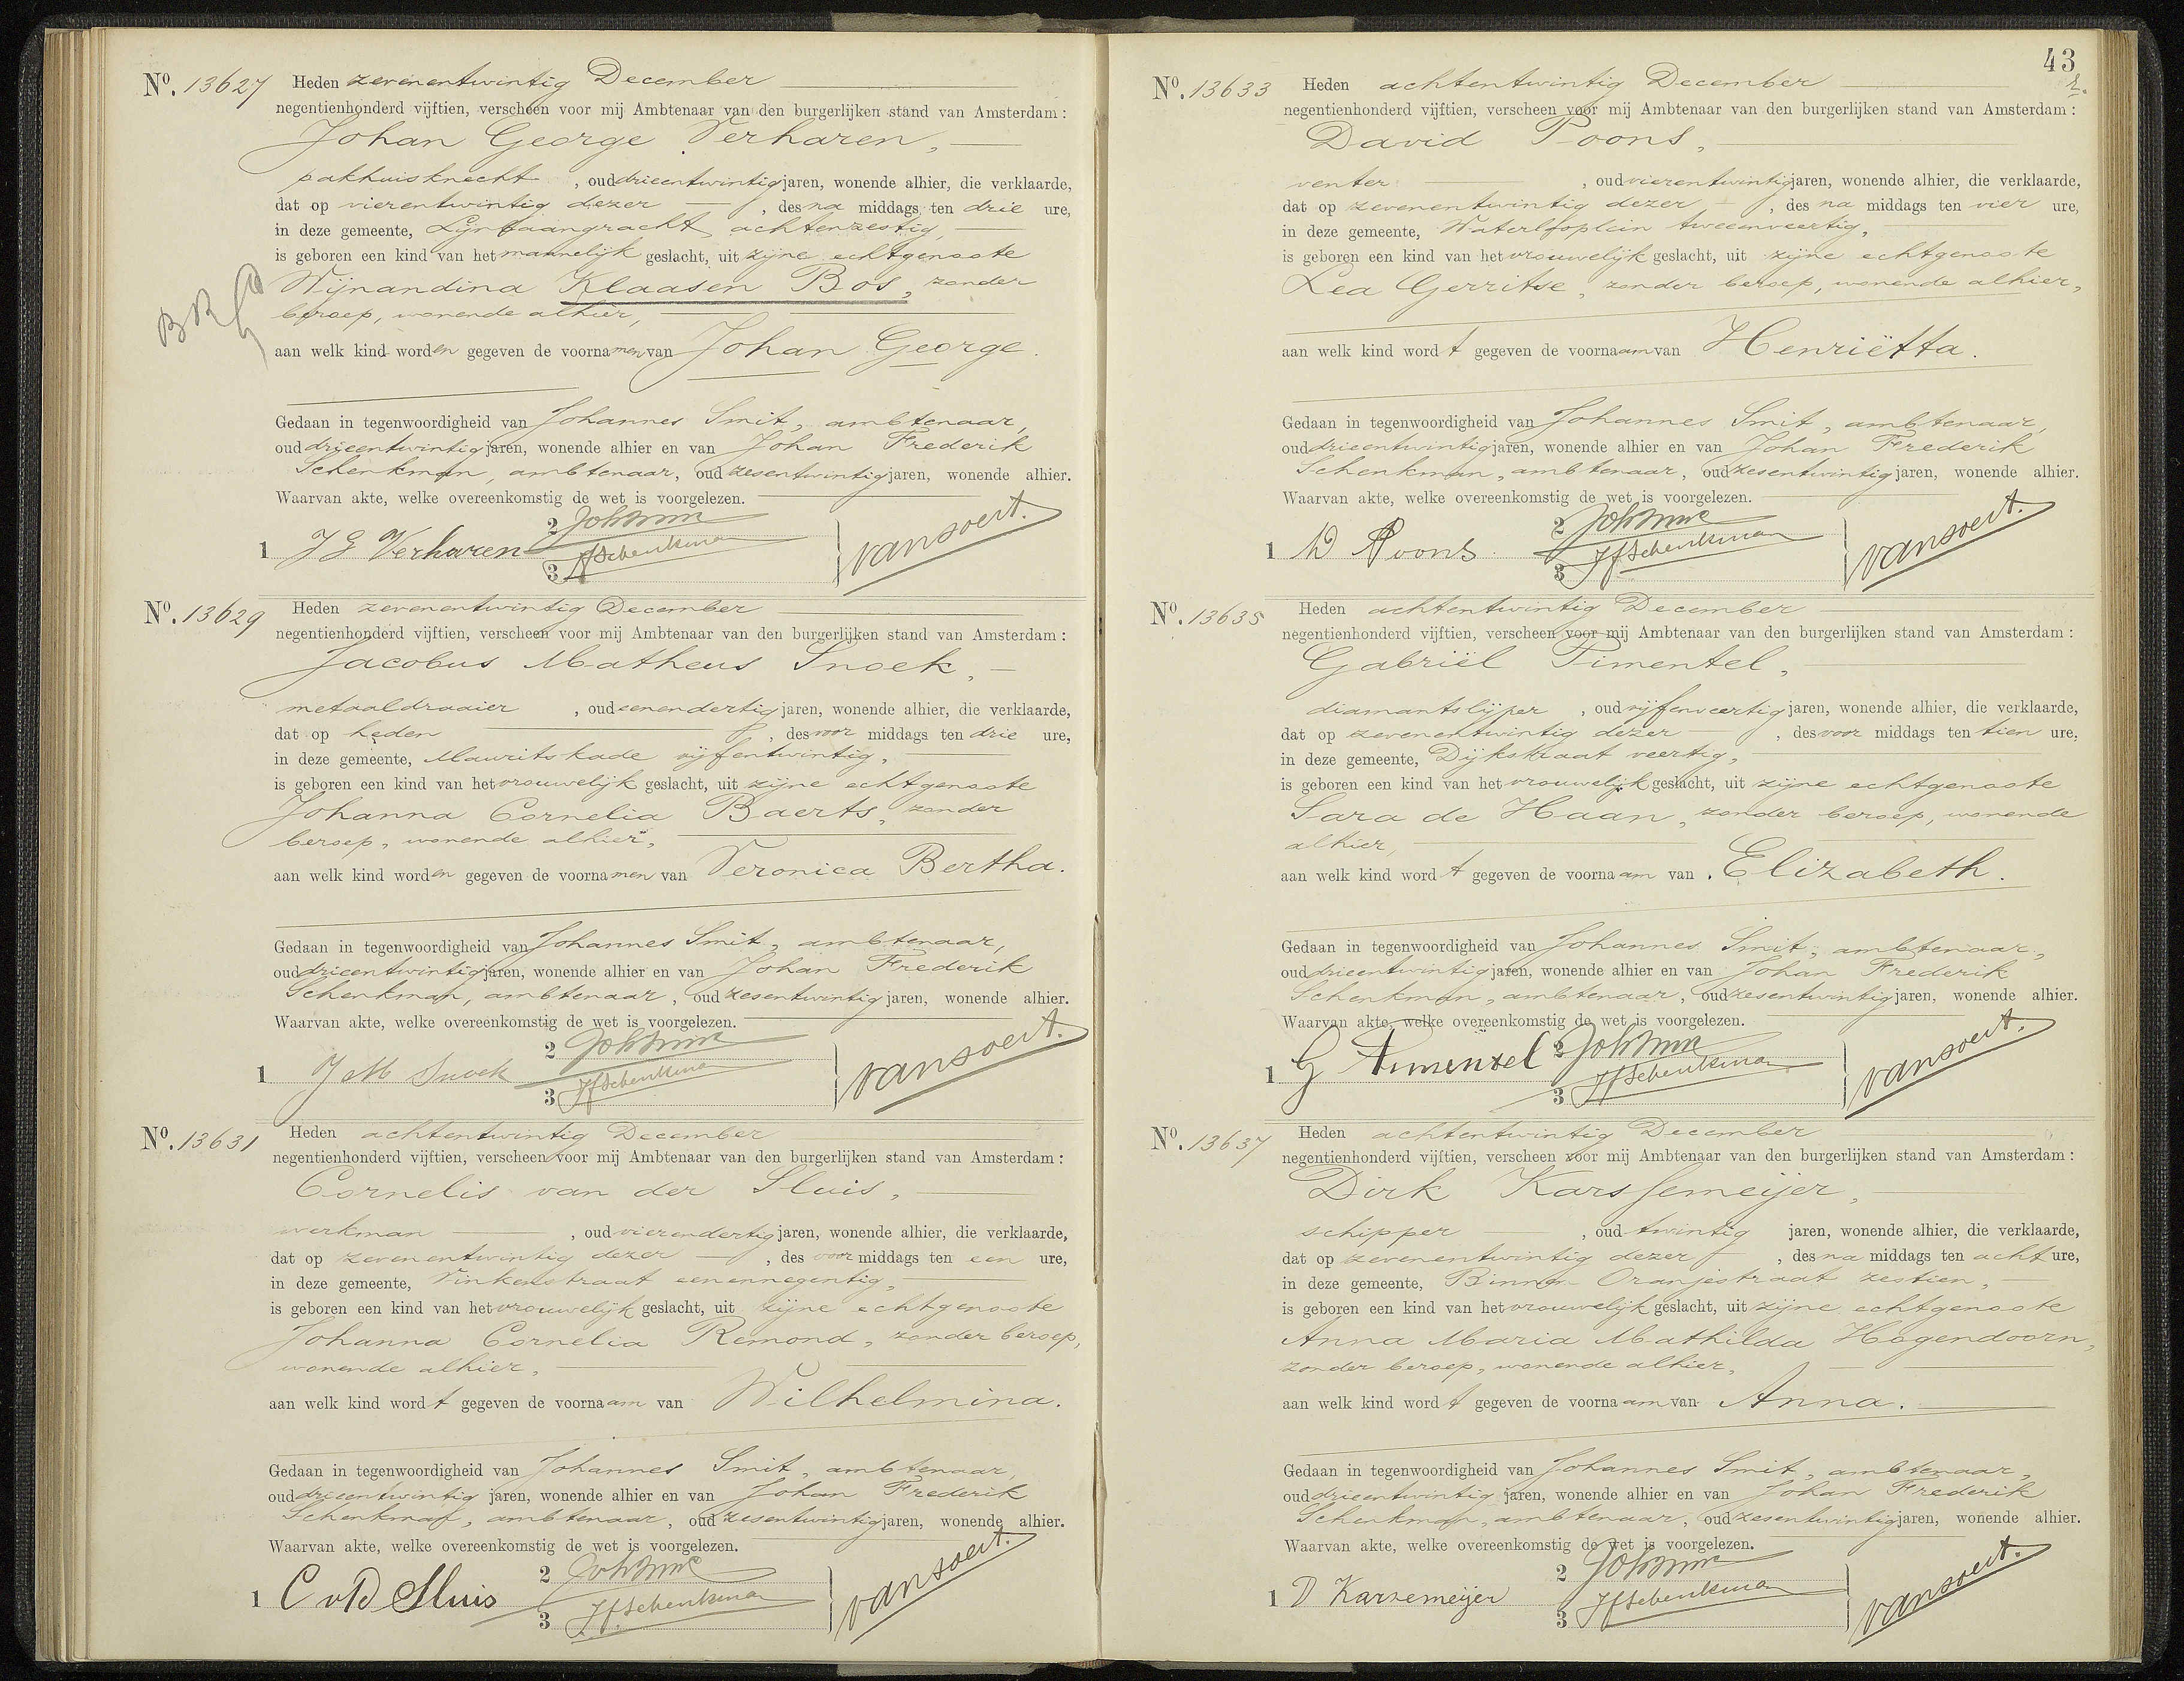 Nº. 13627 Heden zevenentwintig December
negentienhonderd vijftien, verscheen voor mij Ambtenaar van den burgerlijken stand van Amsterdam:
Johan George Verharen,
pakhuisknecht, oud drieentwintig jaren, wonende alhier, die verklaarde,
dat op vierentwintig dezer, des na middags ten drie ure,
in deze gemeente, Lijnbaangracht achtenzestig,
is geboren een kind van het mannelijk geslacht, uit zijne echtgenoote
Wijnandina Klaasen Bos, zonder
beroep, wonende alhier,
aan welk kind worden gegeven de voornamen van Johan George.
Gedaan in tegenwoordigheid van Johannes Smit, ambtenaar,
oud drieentwintig jaren, wonende alhier en van Johan Frederik
Schenkman, ambtenaar, oud zesentwintig jaren, wonende alhier.
Waarvan akte, welke overeenkomstig de wet is voorgelezen.
1 J G Verharen 2 Joh Smit
3 JFSchenkman
van soert.
Nº. 13629 Heden zevenentwintig December
negentienhonderd vijftien, verscheen voor mij Ambtenaar van den burgerlijken stand van Amsterdam:
Jacobus Matheus Snoek,
metaaldraaier, oud eenendertig jaren, wonende alhier, die verklaarde,
dat op heden, des voor middags ten drie ure,
in deze gemeente, Mauritskade vijfentwintig,
is geboren een kind van het vrouwelijk geslacht, uit zijne echtgenoote
Johanna Cornelia Baerts, zonder
beroep, wonende alhier,
aan welk kind worden gegeven de voornamen van Veronica Bertha.
Gedaan in tegenwoordigheid van Johannes Smit, ambtenaar,
oud drieentwintig jaren, wonende alhier en van Johan Frederik
Schenkman, ambtenaar, oud zesentwintig jaren, wonende alhier.
Waarvan akte, welke overeenkomstig de wet is voorgelezen.
1 J M Snoek 2 Joh Smit
3 JFSchenkman
van soert.
Nº. 13631 Heden achtentwintig December
negentienhonderd vijftien, verscheen voor mij Ambtenaar van den burgerlijken stand van Amsterdam:
Cornelis van der Sluis,
werkman, oud vierendertig jaren, wonende alhier, die verklaarde,
dat op zevenentwintig dezer, des voor middags ten een ure,
in deze gemeente, Vinkenstraat eenennegentig,
is geboren een kind van het vrouwelijk geslacht, uit zijne echtgenoote
Johanna Cornelia Remond, zonder beroep,
wonende alhier,
aan welk kind wordt gegeven de voornaam van Wilhelmina.
Gedaan in tegenwoordigheid van Johannes Smit, ambtenaar,
oud drieentwintig jaren, wonende alhier en van Johan Frederik
Schenkman, ambtenaar, oud zesentwintig jaren, wonende alhier.
Waarvan akte, welke overeenkomstig de wet is voorgelezen.
1 C vd Sluis 2 Joh Smit
3 JFSchenkman
van soert.
43
Nº. 13633 Heden achtentwintig December
negentienhonderd vijftien, verscheen voor mij Ambtenaar van den burgerlijken stand van Amsterdam:
David Poons,
venter, oud vierentwintig jaren, wonende alhier, die verklaarde,
dat op zevenentwintig dezer, des na middags ten vier ure,
in deze gemeente, Waterlooplein tweeenveertig,
is geboren een kind van het vrouwelijk geslacht, uit zijne echtgenoote
Lea Gerritse, zonder beroep, wonende alhier,
aan welk kind wordt gegeven de voornaam van Henriëtta.
Gedaan in tegenwoordigheid van Johannes Smit, ambtenaar,
oud drieentwintig jaren, wonende alhier en van Johan Frederik
Schenkman, ambtenaar, oud zesentwintig jaren, wonende alhier.
Waarvan akte, welke overeenkomstig de wet is voorgelezen.
1 D Poons 2 Joh Smit
3 JFSchenkman
van soert.
Nº. 13635 Heden achtentwintig December
negentienhonderd vijftien, verscheen voor mij Ambtenaar van den burgerlijken stand van Amsterdam:
Gabriël Pimentel,
diamantslijper, oud vijfenveertig jaren, wonende alhier, die verklaarde,
dat op zevenentwintig dezer, des voor middags ten tien ure,
in deze gemeente, Dijkstraat veertig,
is geboren een kind van het vrouwelijk geslacht, uit zijne echtgenoote
Sara de Haan, zonder beroep, wonende
alhier,
aan welk kind wordt gegeven de voornaam van Elizabeth.
Gedaan in tegenwoordigheid van Johannes Smit, ambtenaar,
oud drieentwintig jaren, wonende alhier en van Johan Frederik
Schenkman, ambtenaar, oud zesentwintig jaren, wonende alhier.
Waarvan akte, welke overeenkomstig de wet is voorgelezen.
1 G Pimentel 2 Joh Smit
3 JFSchenkman
van soert.
Nº. 13637 Heden achtentwintig December
negentienhonderd vijftien, verscheen voor mij Ambtenaar van den burgerlijken stand van Amsterdam:
Dirk Karssemeijer,
schipper, oud twintig jaren, wonende alhier, die verklaarde,
dat op zevenentwintig dezer, des na middags ten acht ure,
in deze gemeente, Binnen Oranjestraat zestien,
is geboren een kind van het vrouwelijk geslacht, uit zijne echtgenoote
Anna Maria Mathilda Hogendoorn,
zonder beroep, wonende alhier,
aan welk kind wordt gegeven de voornaam van Anna.
Gedaan in tegenwoordigheid van Johannes Smit, ambtenaar,
oud drieentwintig jaren, wonende alhier en van Johan Frederik
Schenkman, ambtenaar, oud zesentwintig jaren, wonende alhier.
Waarvan akte, welke overeenkomstig de wet is voorgelezen.
1 D Karsemeijer 2 Joh Smit
3 JFSchenkman
van soert.